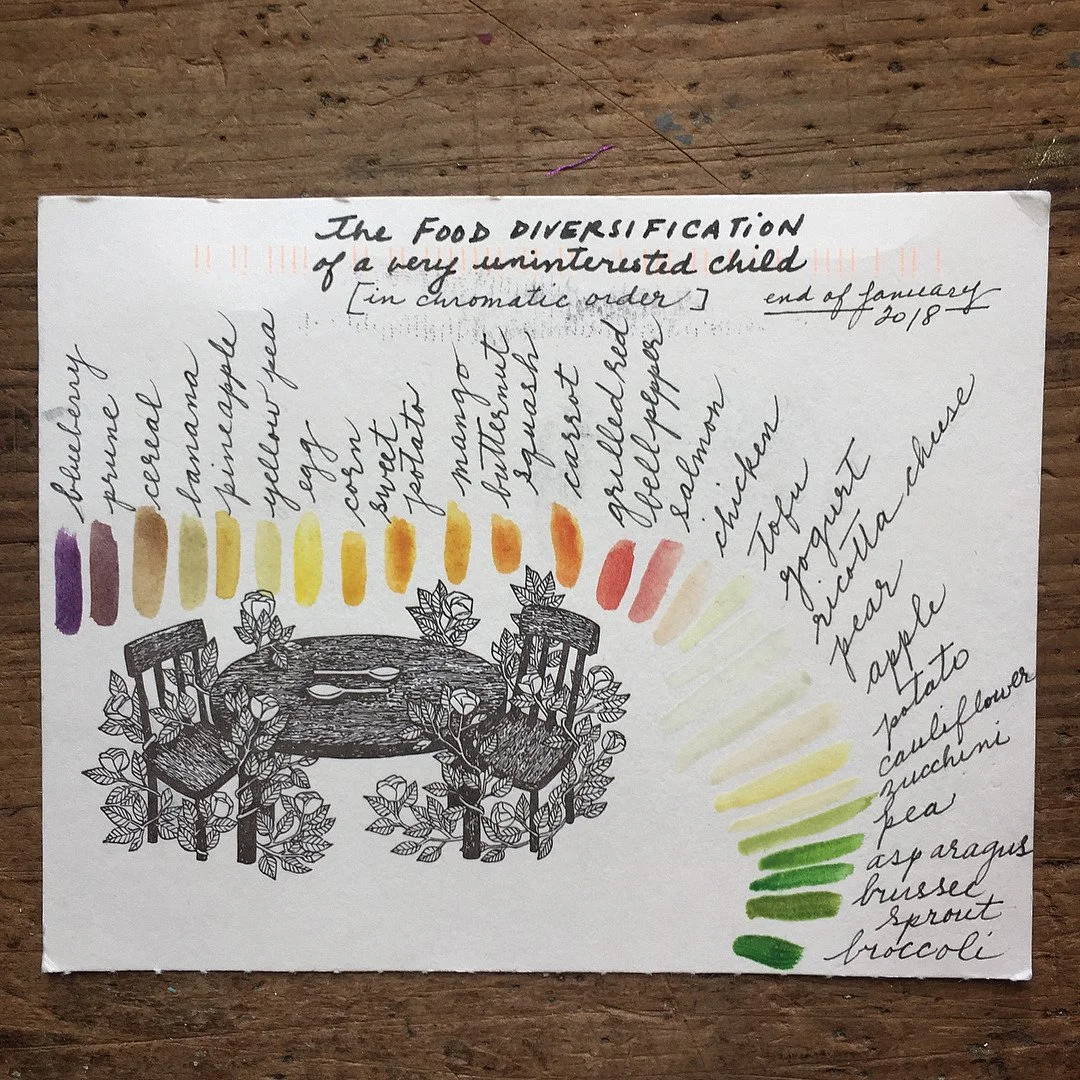 The FOOD DIVERSIFICATION
of a very uninterested child
[in chromatic order]
end of January
2018
blueberry
prune
cereal
banana
pineapple
yellow pea
egg
corn
sweet
potato
mango
butternut
squash
carrot
grilled red
bell pepper
salmon
chicken
tofu
yogurt
ricotta chuse
pear
apple
potato
cauliflower
zucchini
pea
asparagus
brussel
sprout
broccoli